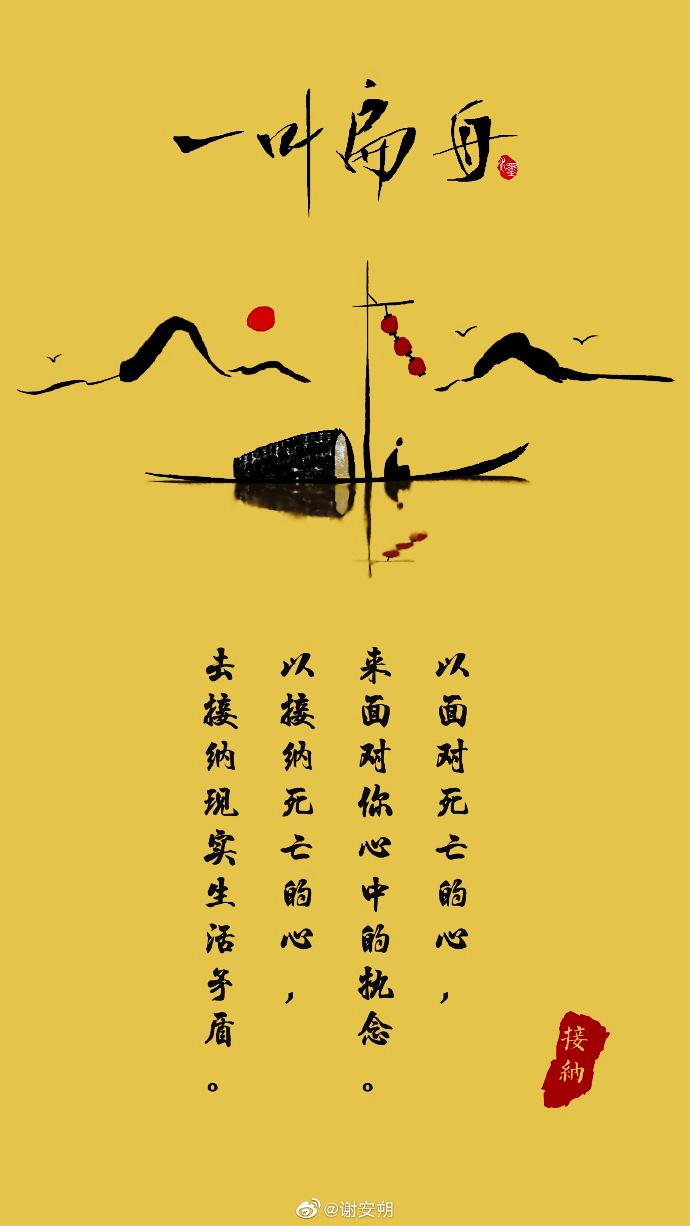 一叶扁舟
以面对死亡的心，
来面对你心中的执念。
以接纳死亡的心，
去接纳现实生活矛盾。
接纳
@谢安朔